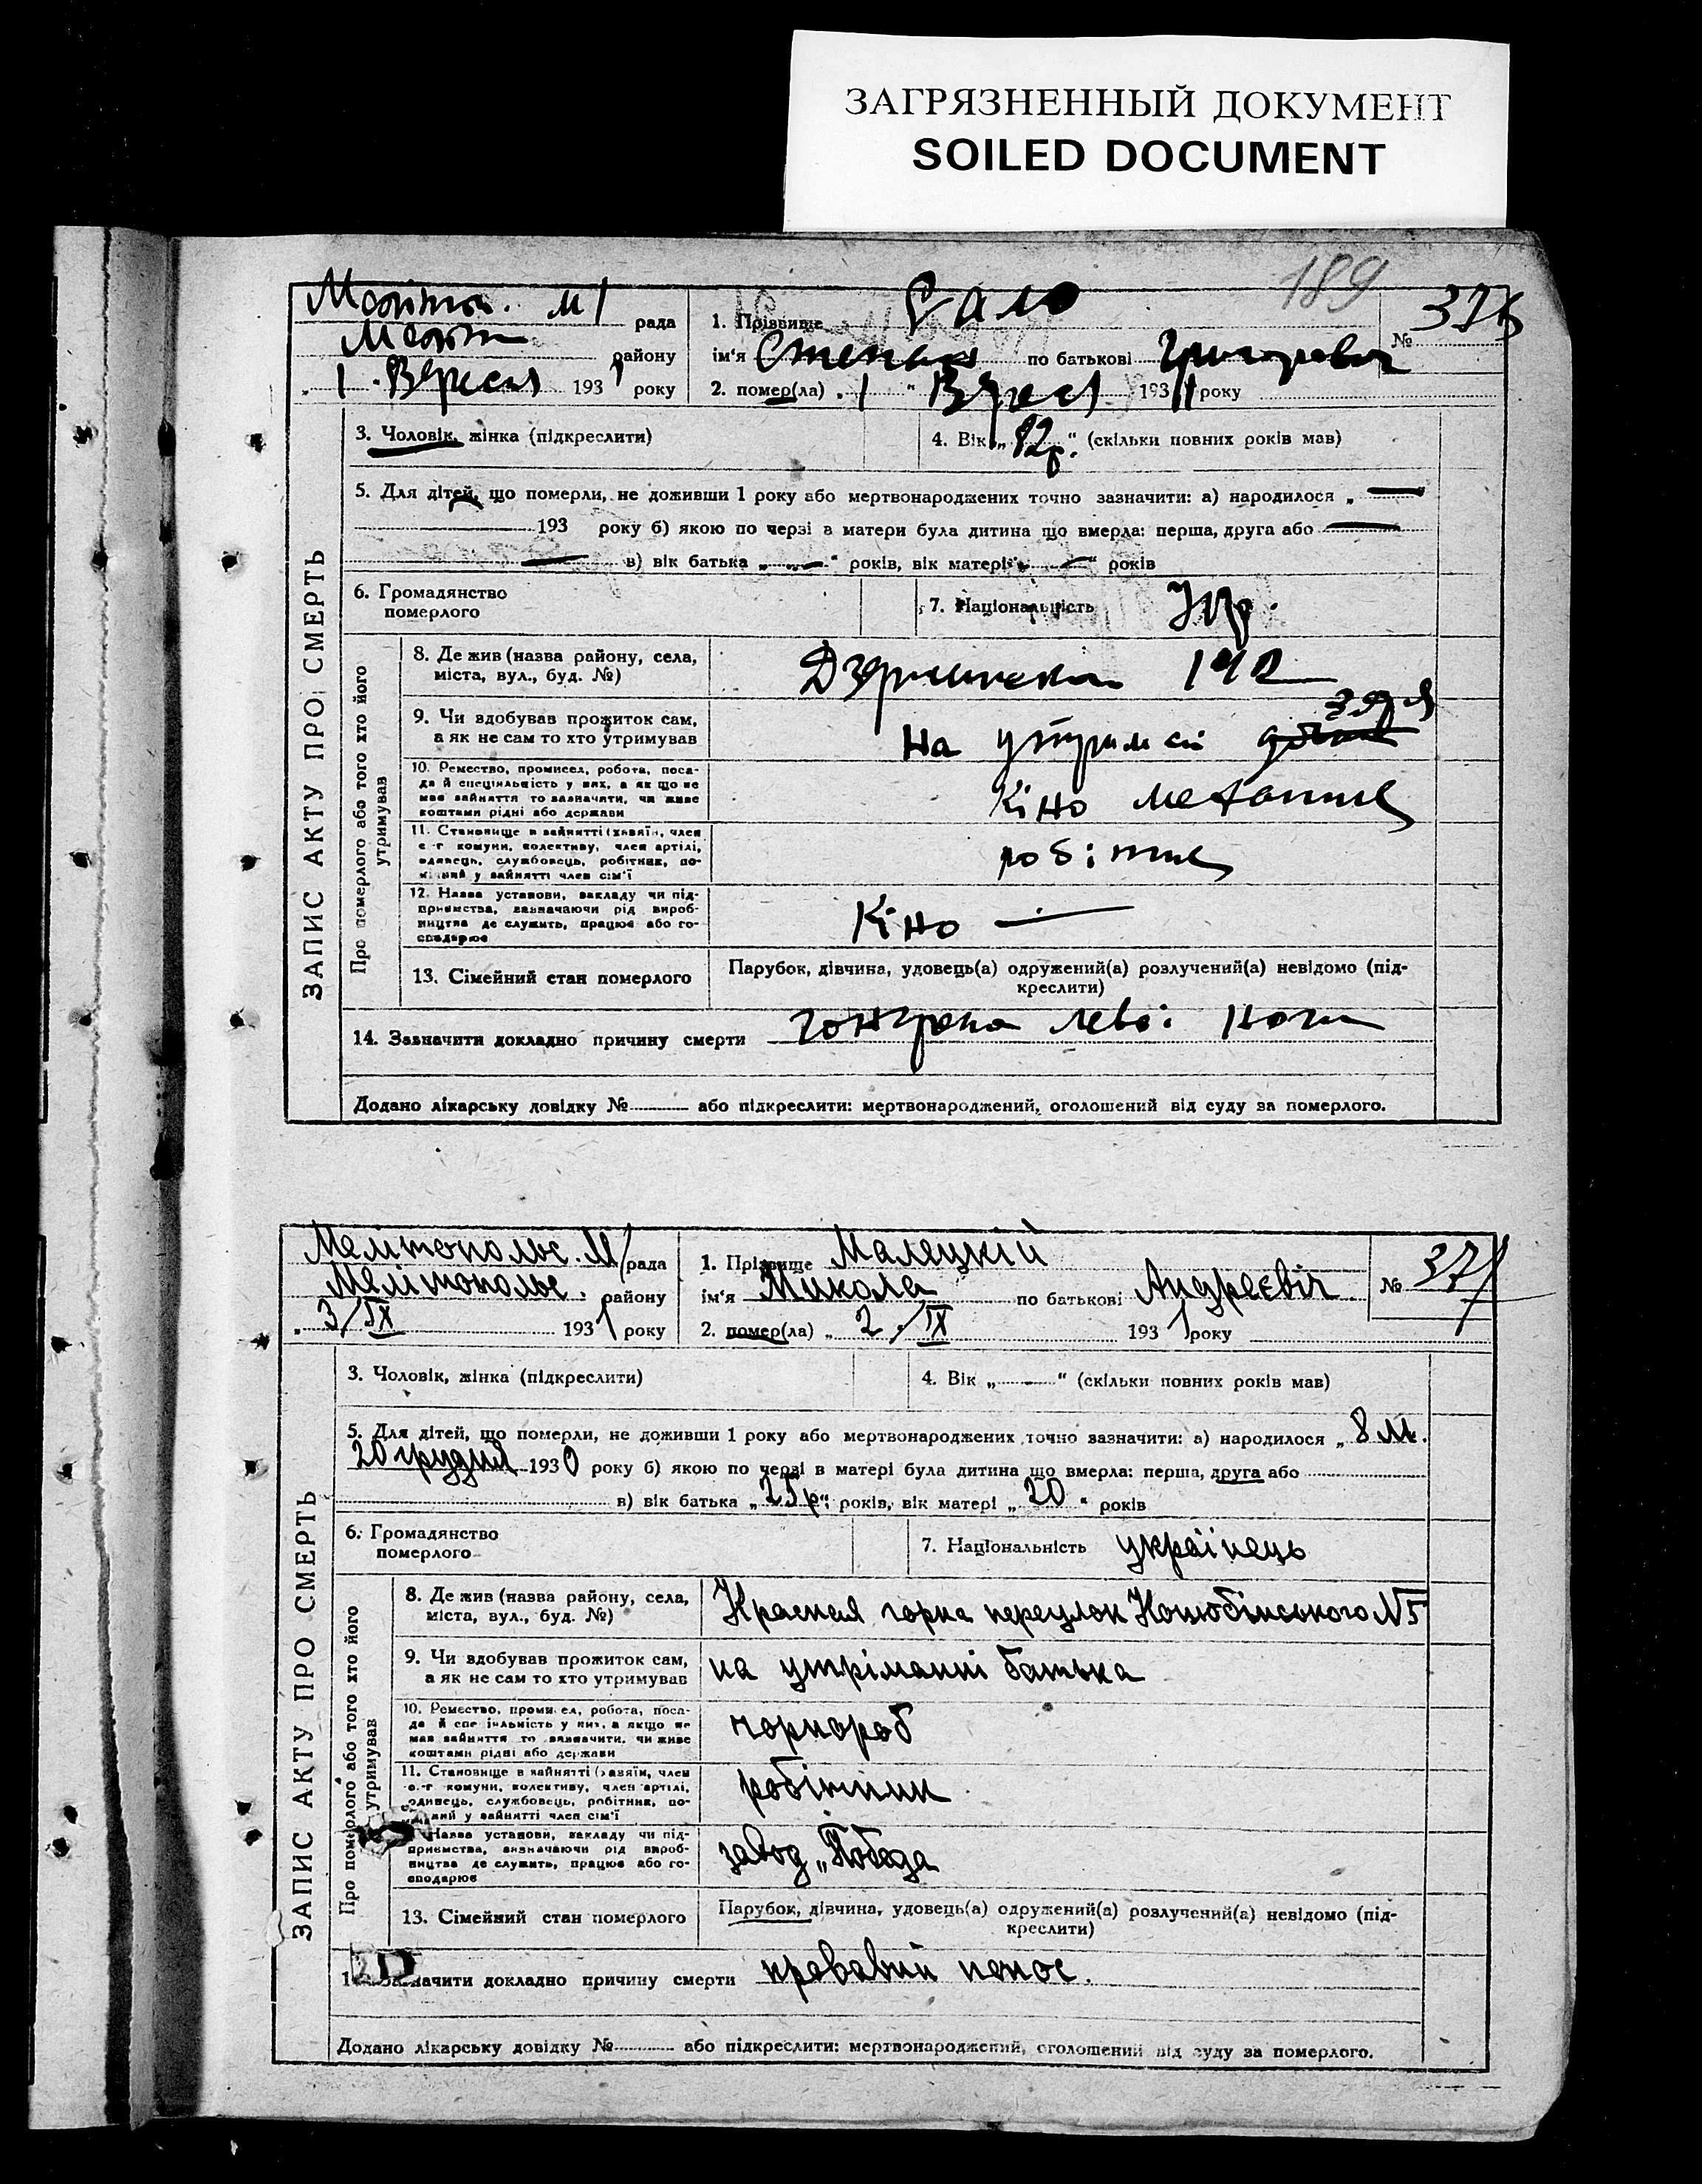 ЗАГРЯЗНЕННЫЙ ДОКУМЕНТ
SOILED DOCUMENT
189
ЗАПИС АКТУ ПРО СМЕРТЬ
рада
району
1 Вересня 1931 року
1. Прізвище Сало № 376
ім'я Степан по батькові Григорович
2. помер(ла) „ 1 “ 1931 року
3. Чоловік, жінка (підкреслити)
4. Вік „ 82р. “ (скільки повних років мав)
5. Для дітей, що померли, не доживши 1 року або мертвонароджених точно зазначити: а) народилося „ —
193 року б) якою по черзі в матери була дитина що вмерла: перша, друга або —
— в) вік батька „ — “ років, вік матері „ — “ років
6. Громадянство
померлого
7. Національність Укр.
Про померлого або того хто його
утримував
8. Де жив (назва району, села,
міста, вул., буд. №)
192
9. Чи вдобував прожиток сам,
а як не сам то хто утримував
зятя
На
10. Ремество, промисел, робота, поса-
да й спеціяльність у них, а як що не
мав зайняття то зазначити, чи живе
коштами рідні або держави
Кіно механик
11. Становище в зайнятті (хазяїн, член
с.-г. комуни, колективу, член артілі,
одинець, службовець, робітник, по-
мічний у зайнятті член сім'ї
робітник
12. Назва установи, закладу чи під-
приємства, зазначаючи рід вироб-
ництва де служить, працює або го-
сподарює
Кіно —
13. Сімейний стан померлого
Парубок, дівчина, удовець(а) одружений(а) розлучений(а) невідомо (під-
креслити)
14. Зазначити докладно причину смерти гонгрена левої ноги
Додано лікарську довідку № або підкреслити: мертвонароджений, оголошений від суду за померлого.
ЗАПИС АКТУ ПРО СМЕРТЬ
Мелітопольс. М/ рада
Мелітопольс. району
„ 3/IX 1931 року
1. Прізвище Малецкій № 377
ім'я Микола по батькові Андреєвіч
2. помер(ла) „ 2/IX 1931 року
3. Чоловік, жінка (підкреслити)
4. Вік „ “ (скільки повних років мав)
5. Для дітей, що померли, не доживши 1 року або мертвонароджених точно зазначити: а) народилося „ 8 м.
20 грудня 1930 року б) якою по черзі в матері була дитина що вмерла: перша, друга або
в) вік батька „ 25 р “ років, вік матері „ 20 “ років
6. Громадянство
померлого
7. Національність українець
Про померлого або того хто його
утримував
8. Де жив (назва району, села,
міста, вул., буд. №)
Красная горка переулок Коцюбінського №5
9. Чи вдобував прожиток сам,
а як не сам то хто утримував
на утріманні батька
10. Ремество, промисел, робота, поса-
да й спеціяльність у них, а якщо не
мав зайняття то зазначити, чи живе
коштами рідні або держави
чорнороб
11. Становище в зайнятті (хазяїн, член
с.-г. комуни, колективу, член артілі,
одинець, службовець, робітник, по-
мічний у зайнятті член сім'ї
робітник
Назва установи, закладу чи під-
приємства, зазначаючи рід вироб-
ництва де служить, працює або го-
сподарює
завод „Победа
13. Сімейний стан померлого
Парубок, дівчина, удовець(а) одружений(а) розлучений(а) невідомо (під-
креслити)
14. Зазначити докладно причину смерти кровавий понос.
Додано лікарську довідку № або підкреслити: мертвонароджений, оголошений від суду за померлого.